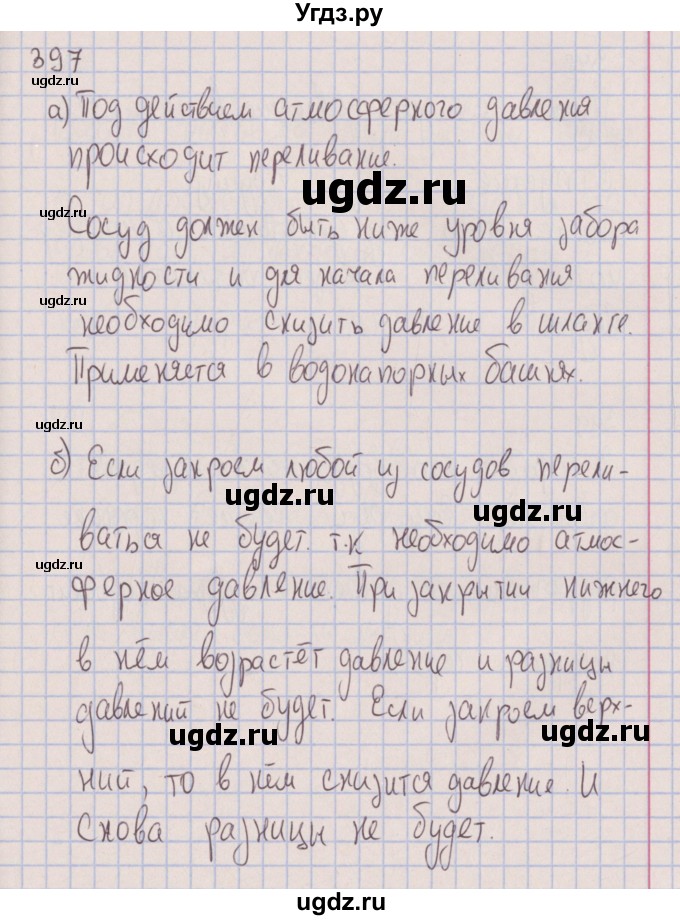 Угдз.ру
397
ugdz.ru
а) Под действием атмосферного давления
происходит переливание.
ugdz.ru
ugdz.ru
Сосуд должен быть ниже уровня забора
жидкости и для начала переливания
ugdz.ru
необходимо снизить давление в шланге.
Применяется в водонапорных башнях.
ugdz.ru
б) Если закроем любой из сосудов перели-
ugdz.ru
ugdz.ru
ваться не будет. т.к необходимо атмос-
ugdz.ru
ферное давление. При закрытии нижнего
в нём возрастёт давление и разницы
давлений не будет. Если закроем верх-
ugdz.ru
ugdz.ru
ний, то в нём снизится давление. И
снова разницы не будет.
ugdz.ru